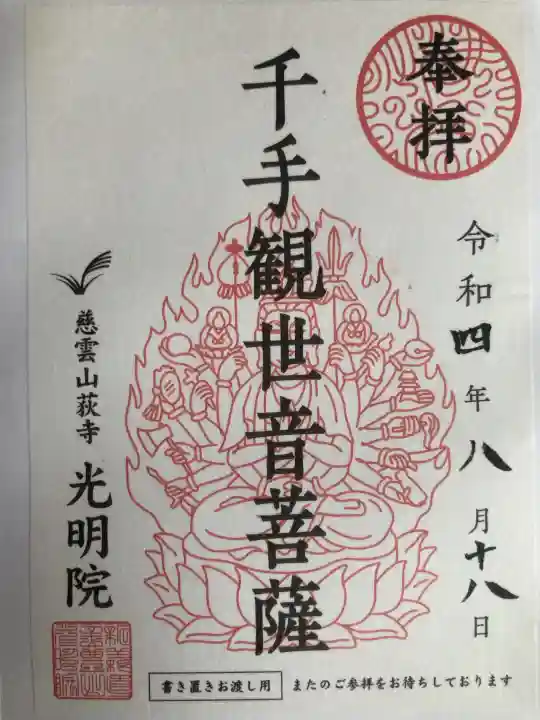 奉拝
令和四年八月十八日
千手観世音菩薩
慈雲山荻寺
光明院
書き置きお渡し用
またのご参拝をお待ちしております